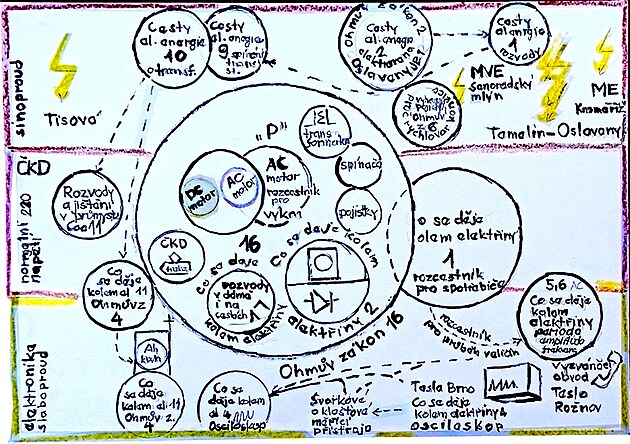 silnoproud
Cesty
al. energie
10
o transf.
Cesty
al. energie
9 spínání
trans
st.
Ohmův zákon 2
Cesty
al. energie
2
elektrárna
Oslavany
Cesty
al. energie
1
rozvody
Tisová
MVE
Sanoradský
mlýn
ME
Kroměříž
Tamalin-Oslavany
ČKD
normalní 220
napětí
Rozvody
a jištění
v průmyslu
Coo 11
"P"
DC
motor
AC
motor
AC
motor
rozcestník
pro
výkm
trans
formátor
spínače
pojistky
16
ČKD
Co se děje kolem
elektřiny 2
Co se děje
kolem elektřiny
rozvody
v domě
i na
cestách
o se děje
olem elektřiny
1
rozcestník
pro spotřebiče
Co se
děje
kolem al 11
Ohmův z
4
5,6 AC
Co se děje
kolem
elektřiny
perioda
amplituda
frekvenc
rozcestník
pro průběh veličin
Ohmův zákon 16
elektronika
slaboproud
Ah
kWh
Co se
děje
kolem al 11
Ohmův z.
4
Co se
děje kolem
al 4
Osciloskop
Svorkové
a kleštové
měřící
přístroje
Tesla Brno
Co se děje
kolem elektřiny 4
osciloskop
Vyhodnocovací
obvod
Tesla
Rožnov